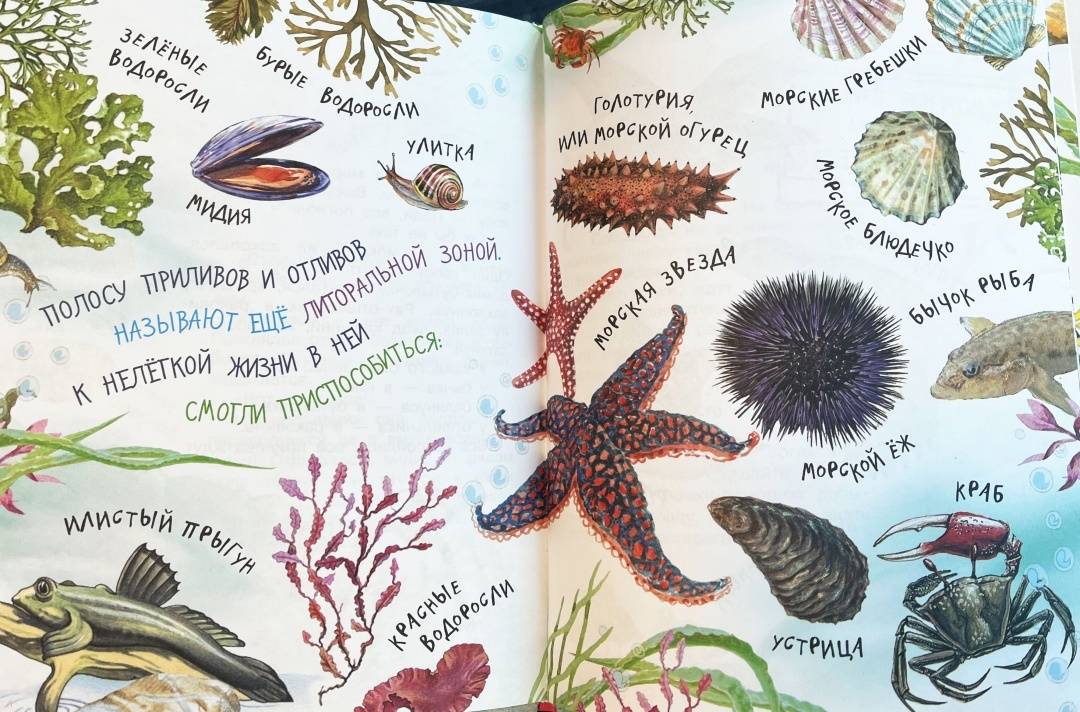 ЗЕЛЁНЫЕ
ВОДОРОСЛИ
БУРЫЕ ВОДОРОСЛИ
МИДИЯ
УЛИТКА
ПОЛОСУ ПРИЛИВОВ И ОТЛИВОВ
НАЗЫВАЮТ ЕЩЁ ЛИТОРАЛЬНОЙ ЗОНОЙ.
К НЕЛЁГКОЙ ЖИЗНИ В НЕЙ
СМОГЛИ ПРИСПОСОБИТЬСЯ:
ИЛИСТЫЙ ПРЫГУН
КРАСНЫЕ
ВОДОРОСЛИ
ГОЛОТУРИЯ,
ИЛИ МОРСКОЙ ОГУРЕЦ
МОРСКИЕ ГРЕБЕШКИ
МОРСКОЕ БЛЮДЕЧКО
МОРСКАЯ ЗВЕЗДА
БЫЧОК РЫБА
МОРСКОЙ ЁЖ
КРАБ
УСТРИЦА